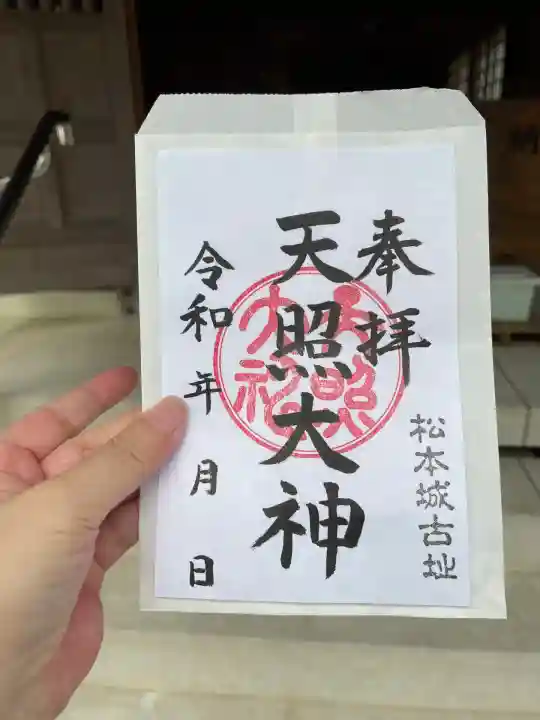 奉拝
松本城古址
天照大神
令和 年 月 日
天照
大神